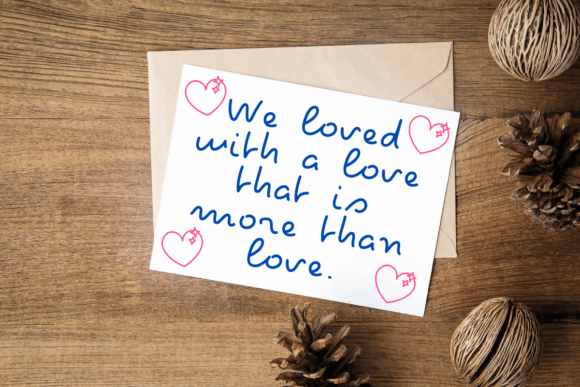 We loved
with a love
that is
more than
love.